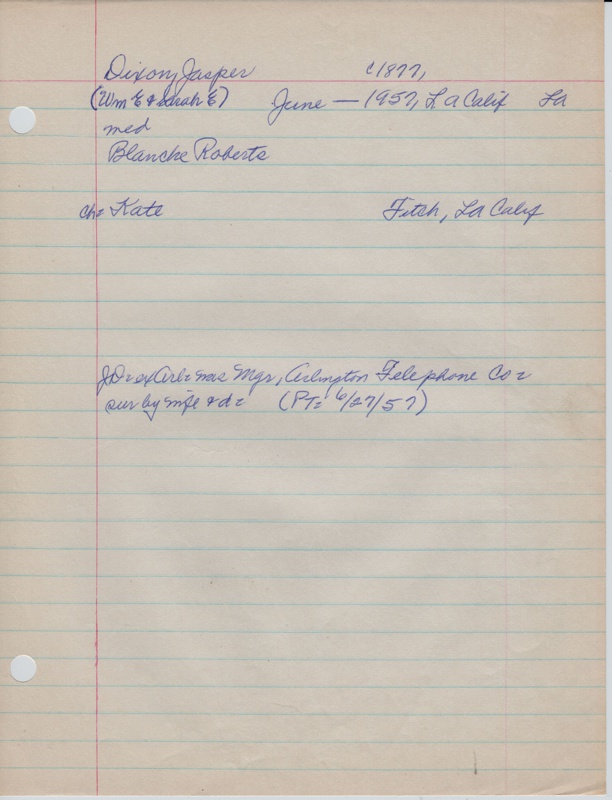 Dixon, Jasper c1877,
(Wm E & Sarah E) June — 1957, LA Calif LA
med
Blanche Roberts
ch: Kate Fitch, LA Calif
JD = ex Arl = was Mgr, Arlington Telephone Co =
sur by wife & d = (PT = 6/27/57)